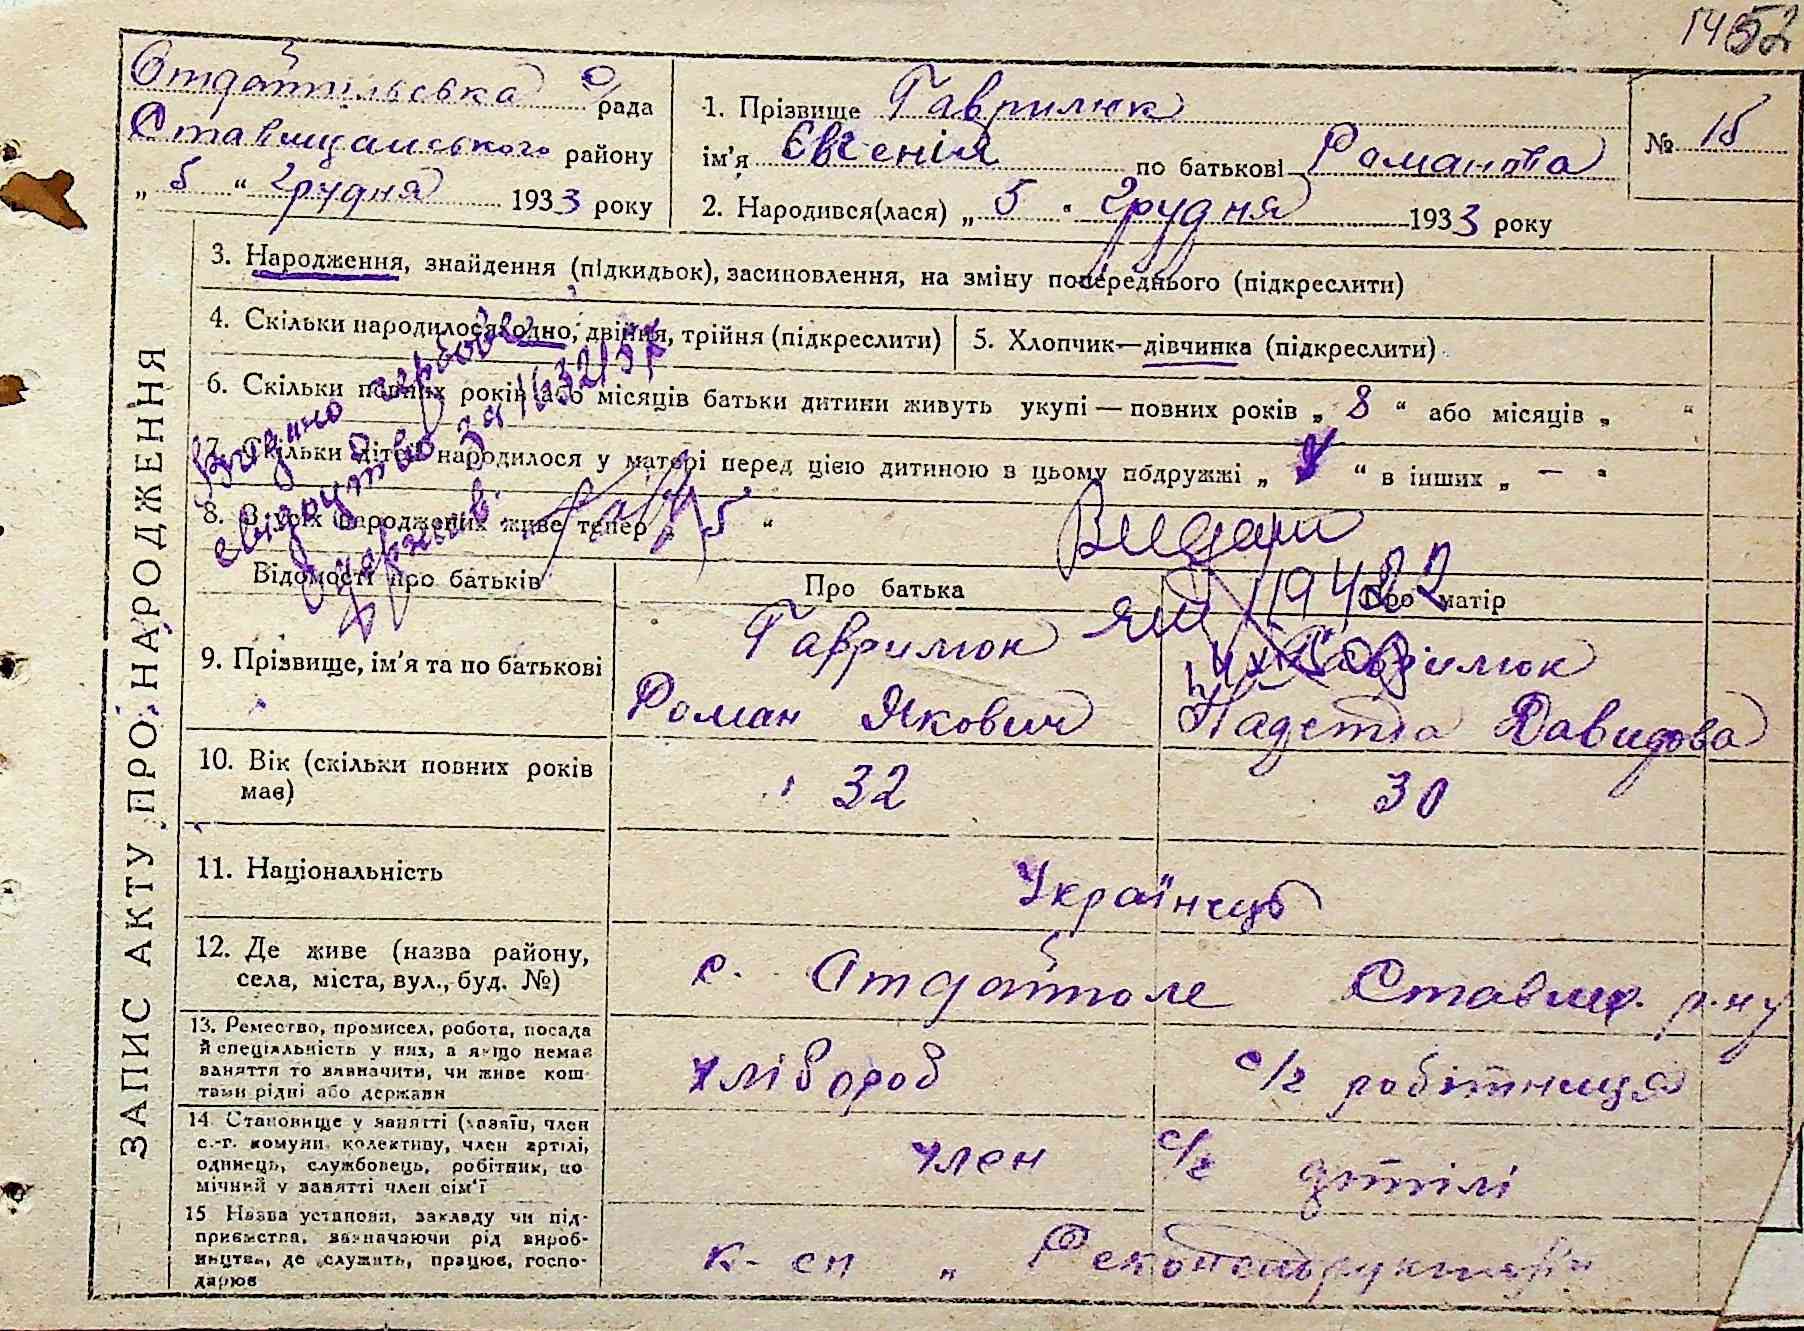 52
Отдайпільська с/рада
Ставищанського району
„ 5 “ Грудня 1933 року
1. Прізвище Гаврилюк
ім'я Євгенія по батькові Романова
№ 15
2. Народився(лася) „ 5 “ Грудня 1933 року
ЗАПИС АКТУ ПРО НАРОДЖЕННЯ
3. Народження, знайдення (підкидьок), засиновлення, на зміну попереднього (підкреслити)
4. Скільки народилося: одно, двійня, трійня (підкреслити)
5. Хлопчик—дівчинка (підкреслити)
6. Скільки повних років або місяців батьки дитини живуть укупі — повних років „ 8 “ або місяців „ “
7. Скільки дітей народилося у матері перед цією дитиною в цьому подружжі „ “ в інших „ — “
8. З усіх народжених живе тепер „ 5 “
Видано
свидоутво за
Відомості про батьків
Про батька
Про матір
9. Прізвище, ім'я та по батькові
Гаврилюк
Роман Якович
Гаврилюк
Надєтда Давидова
10. Вік (скільки повних років має)
32
30
11. Національність
Українець
12. Де живе (назва району,
села, міста, вул., буд. №)
с. Отдайполе Ставищ. р-ну
13. Ремество, промисел, робота, посада
й спеціяльність у них, а якщо немає
заняття то зазначити, чи живе кош-
тами рідні або держави
хлівороб
с/г робітниця
14. Становище у занятті (хазяїн, член
с.-г. комуни, колективу, член артілі,
одинець, службовець, робітник, по-
мічний у занятті член сім'ї
член с/г артілі
15 Назва установи, закладу чи під-
приємства, зазначаючи рід вироб-
ництва, де служить, працює, госпо-
дарює
к-сп „